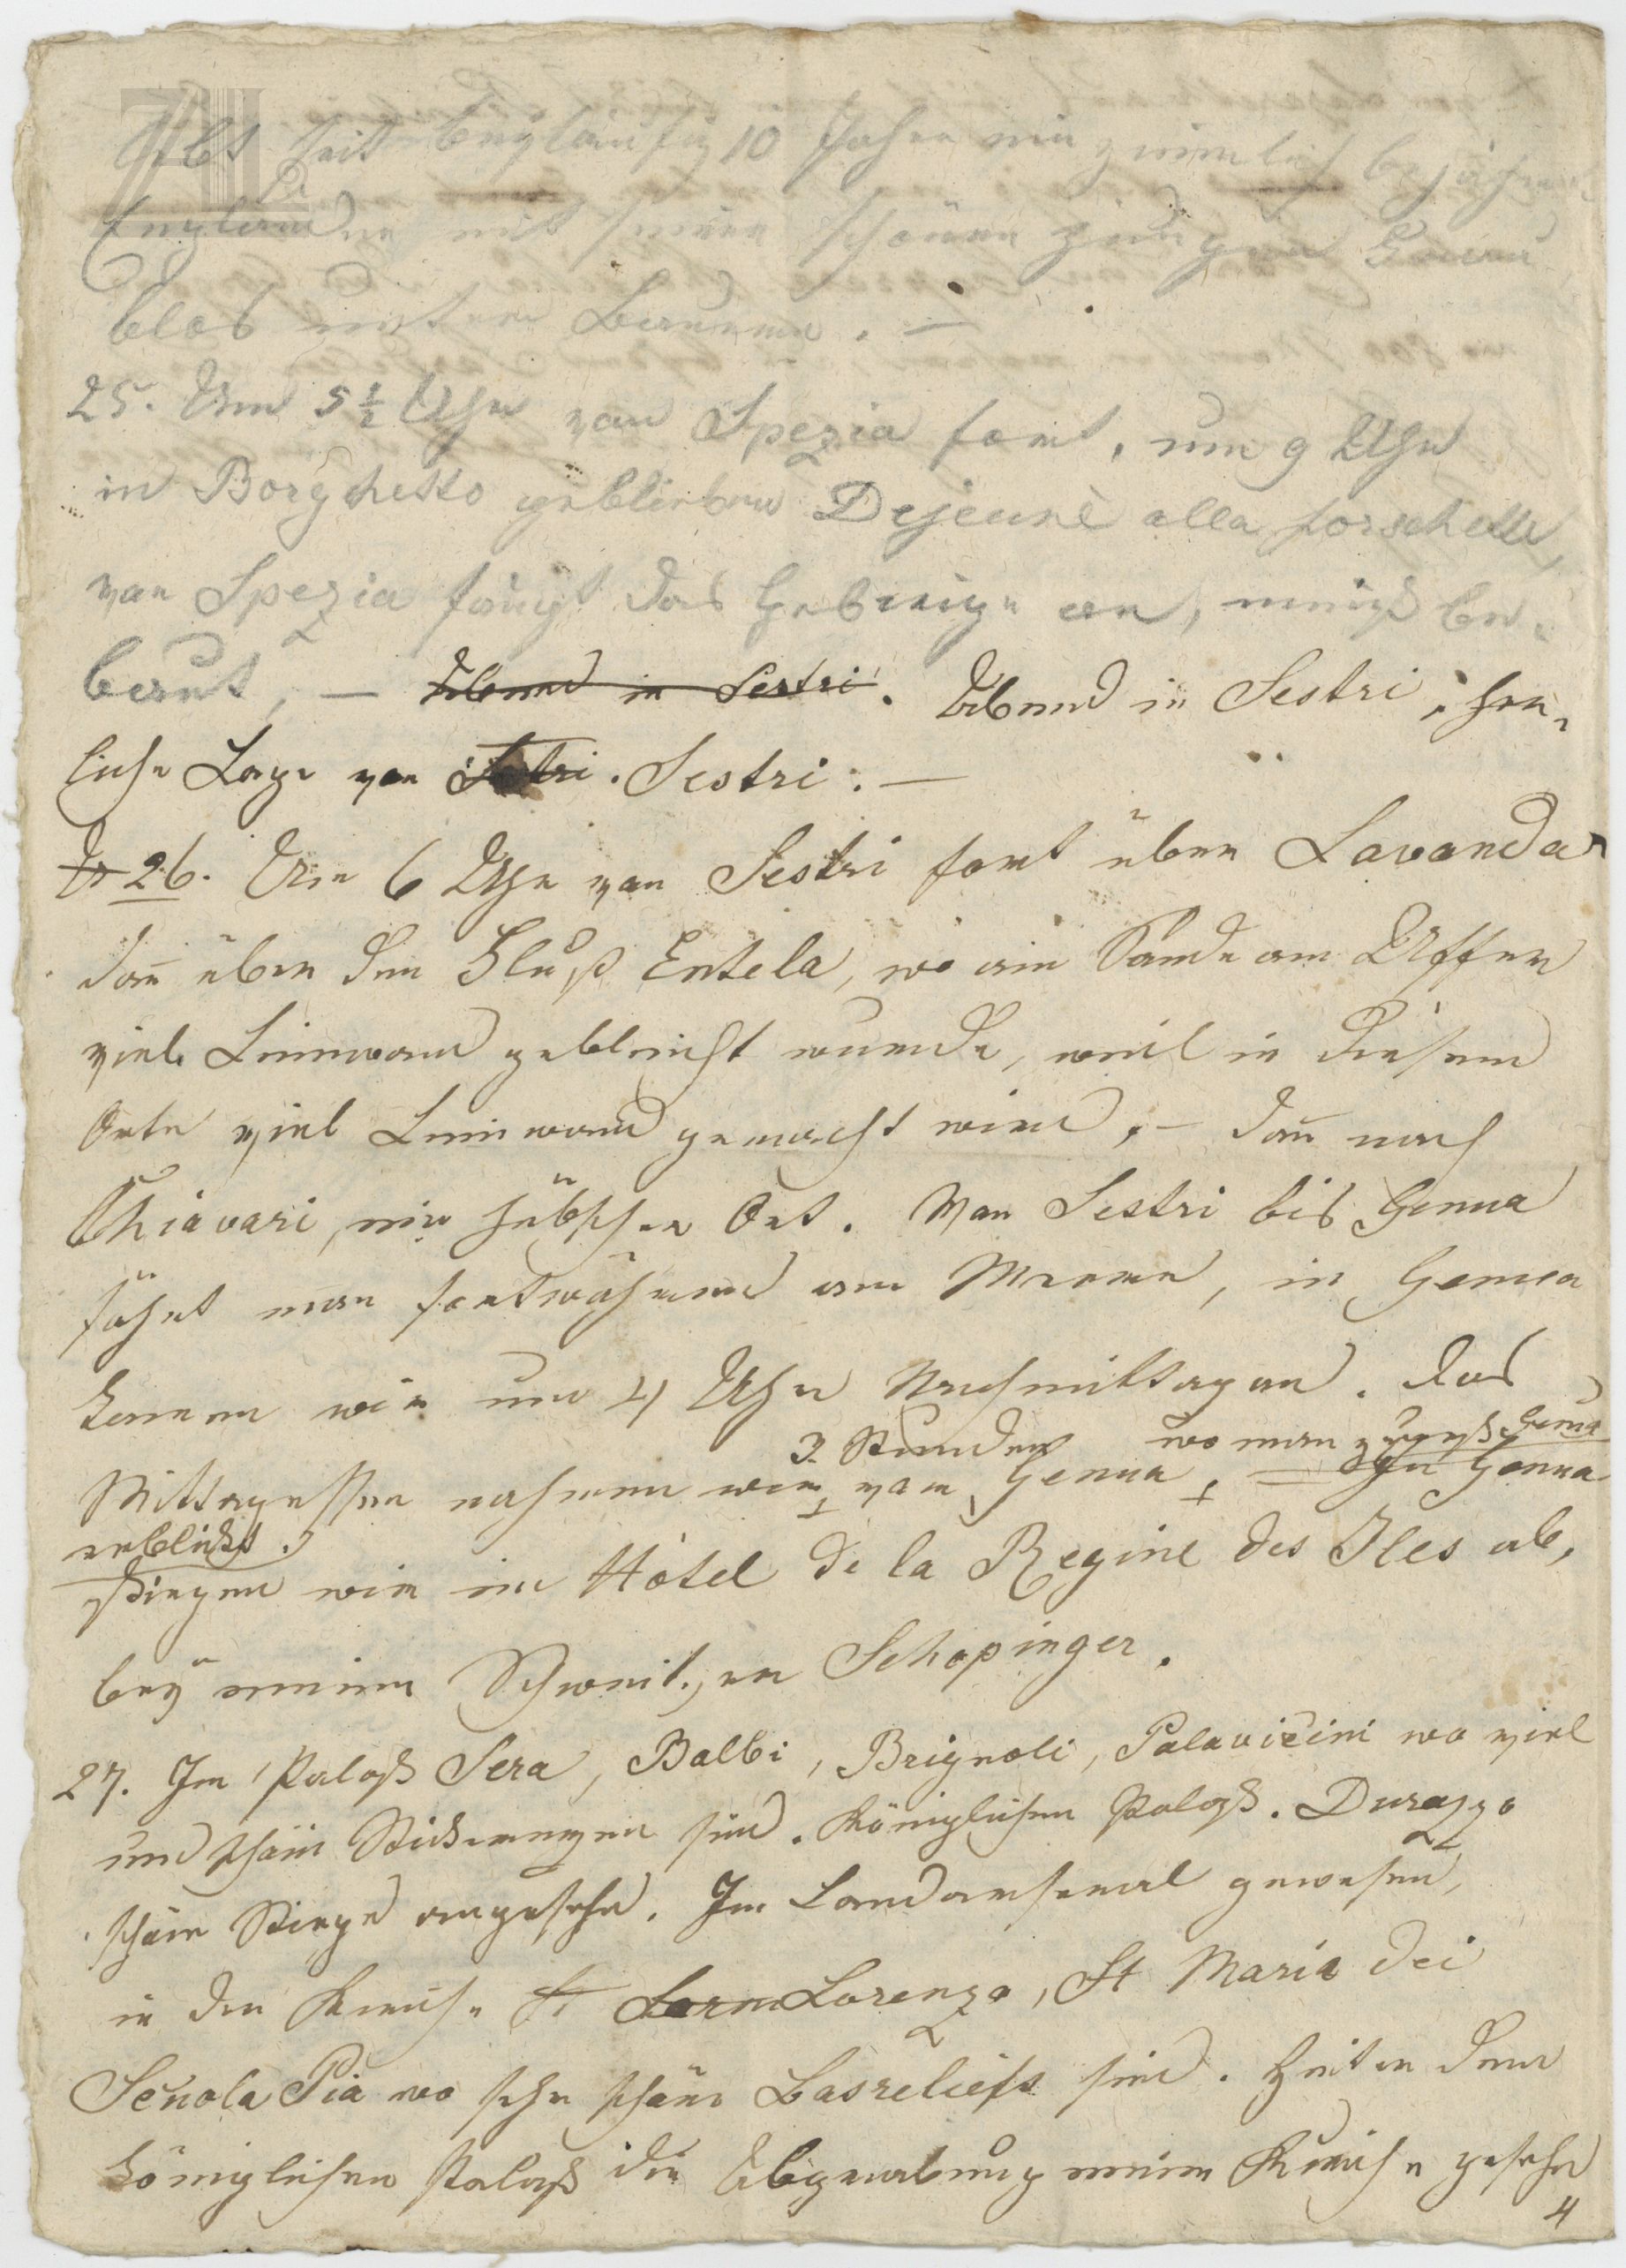 lebt seit beyläufig 10 Jahre ein ziemlich bejahrter
Engländer mit seiner schönen jungen Frau
blos unter Bauern. —
25. Um 5½ Uhr von Spezia fort, um 9 Uhr
in Borghetto geblieben Dejeunè alla forschette,
von Spezia fängt das Gebirige an, wenig be-
baut, — Abend in Sestri. Abend in Sestri, herr-
liche Lage von Sestri. Sestri. —
D 26. Um 6 Uhr von Sestri fort über Lavanda
dañ über den Fluß Entela, wo am Sande am Uffer
viele Leinwand gebleicht wurde, weil in diesem
Orte viel Leinwand gemacht wird, — dañ nach
Chiavari, ein hübscher Ort. Von Sestri bis Genua
fährt man fortwährend am Meere, in Genua
kamen wir um 4 Uhr Nachmittag an. Das
3 Stunden wo man zuerst Genua
Mittagessen nahmen wir von Genua, — In Genua
erblickt.
stiegen wir im Hôtel de la Regine des Iles ab,
bey einem Schweitzer Schopinger.
27. Im Palaß Sera, Balbi, Brignoli, Palavicini wo viel
und schöne Stickereyen sind. Königlichen Palaß. Durazzo
schöne Stiege angesehn. Im Landarsenal gewesen,
in der Kirche St Lorn Lorenzo, St Maria dei
Scuola Pia wo sehr schöne Basreliefs sind. Hinter dem
königlichen Palaß die Abgrabung einer Kirche gesehn
4